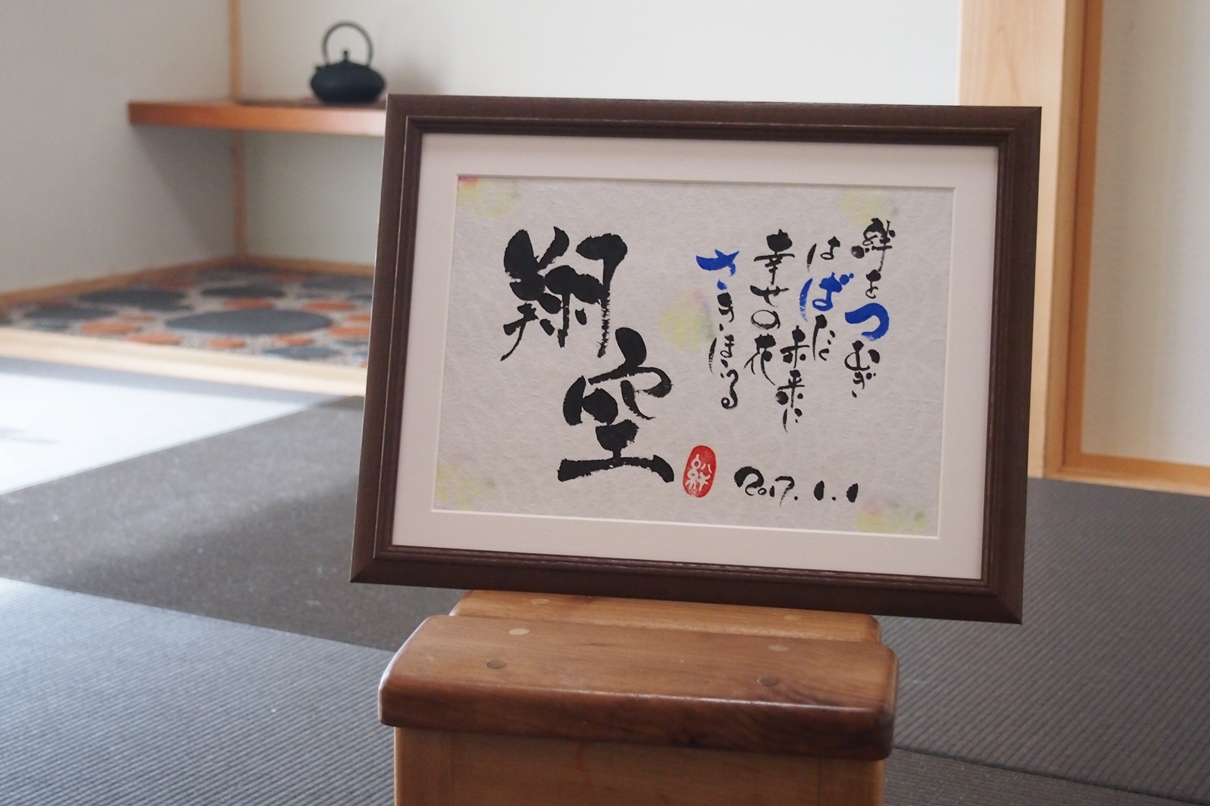 絆をつむぎ
はばたく
未来に
幸せの花
さきほこる
翔空
2017.1.1